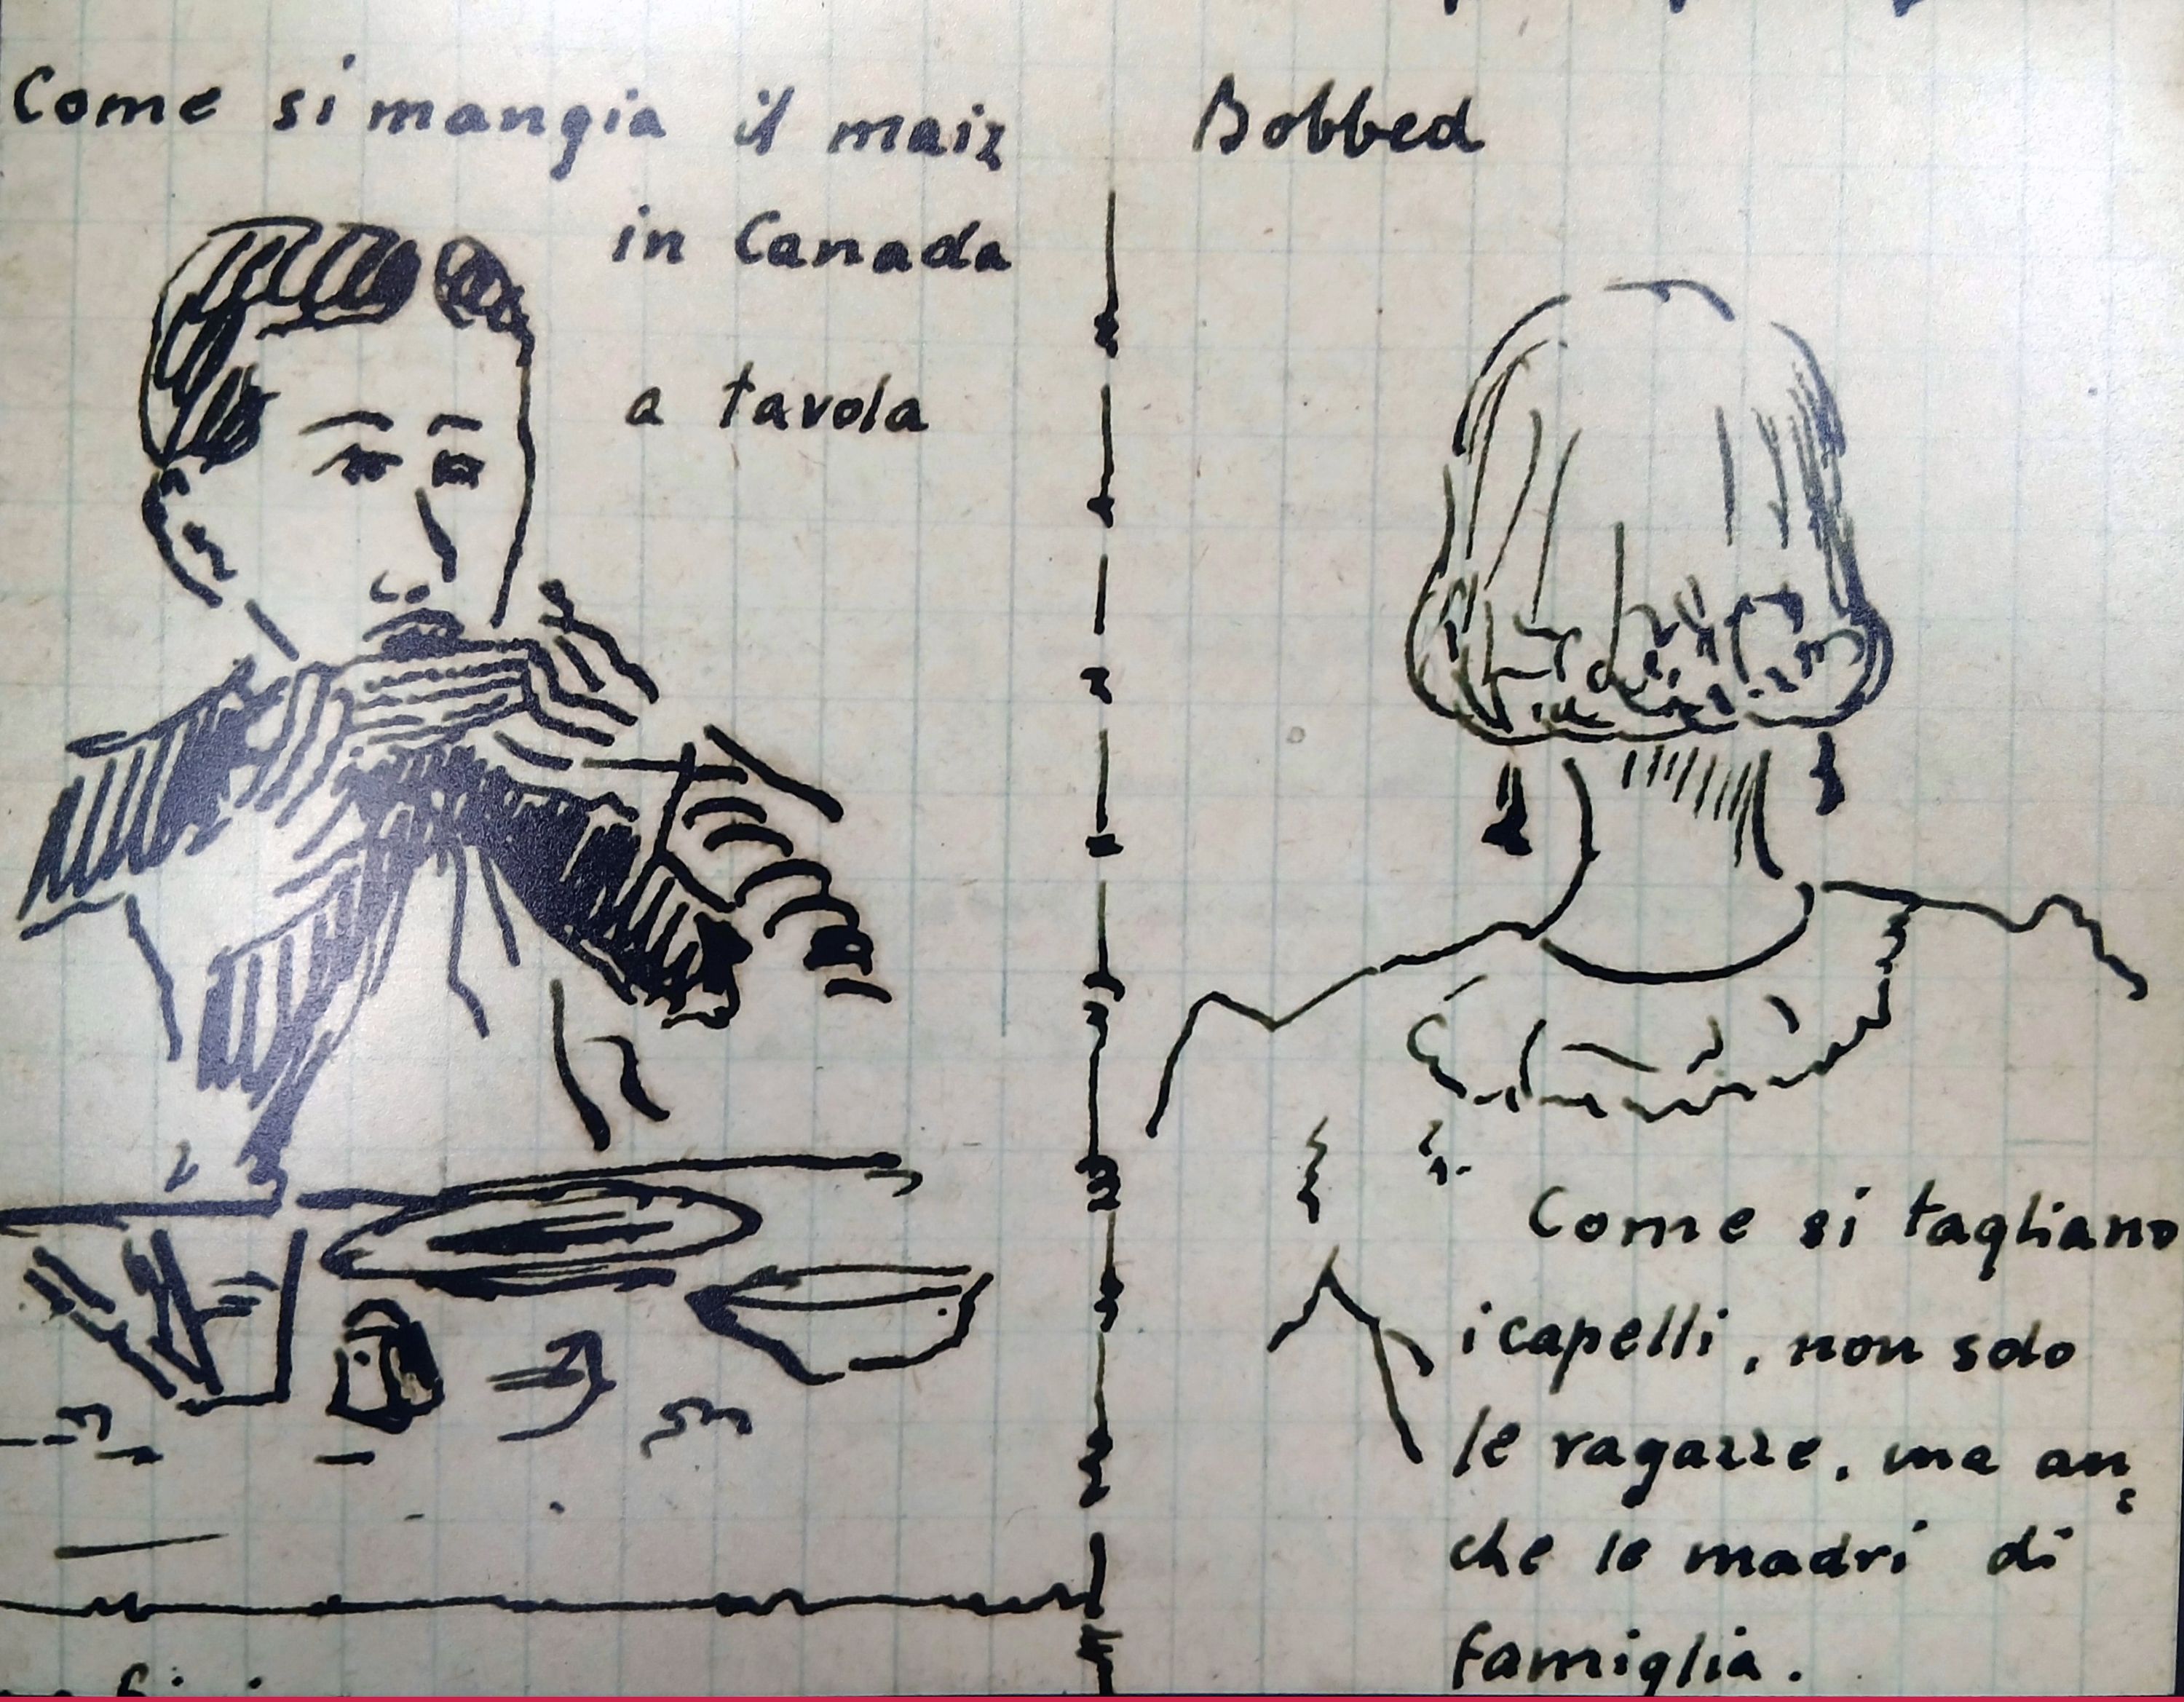 Come si mangia il maiz
in Canada
a tavola
Bobbed
Come si tagliano
i capelli, non solo
le ragazze, ma an-
che le madri di
famiglia.